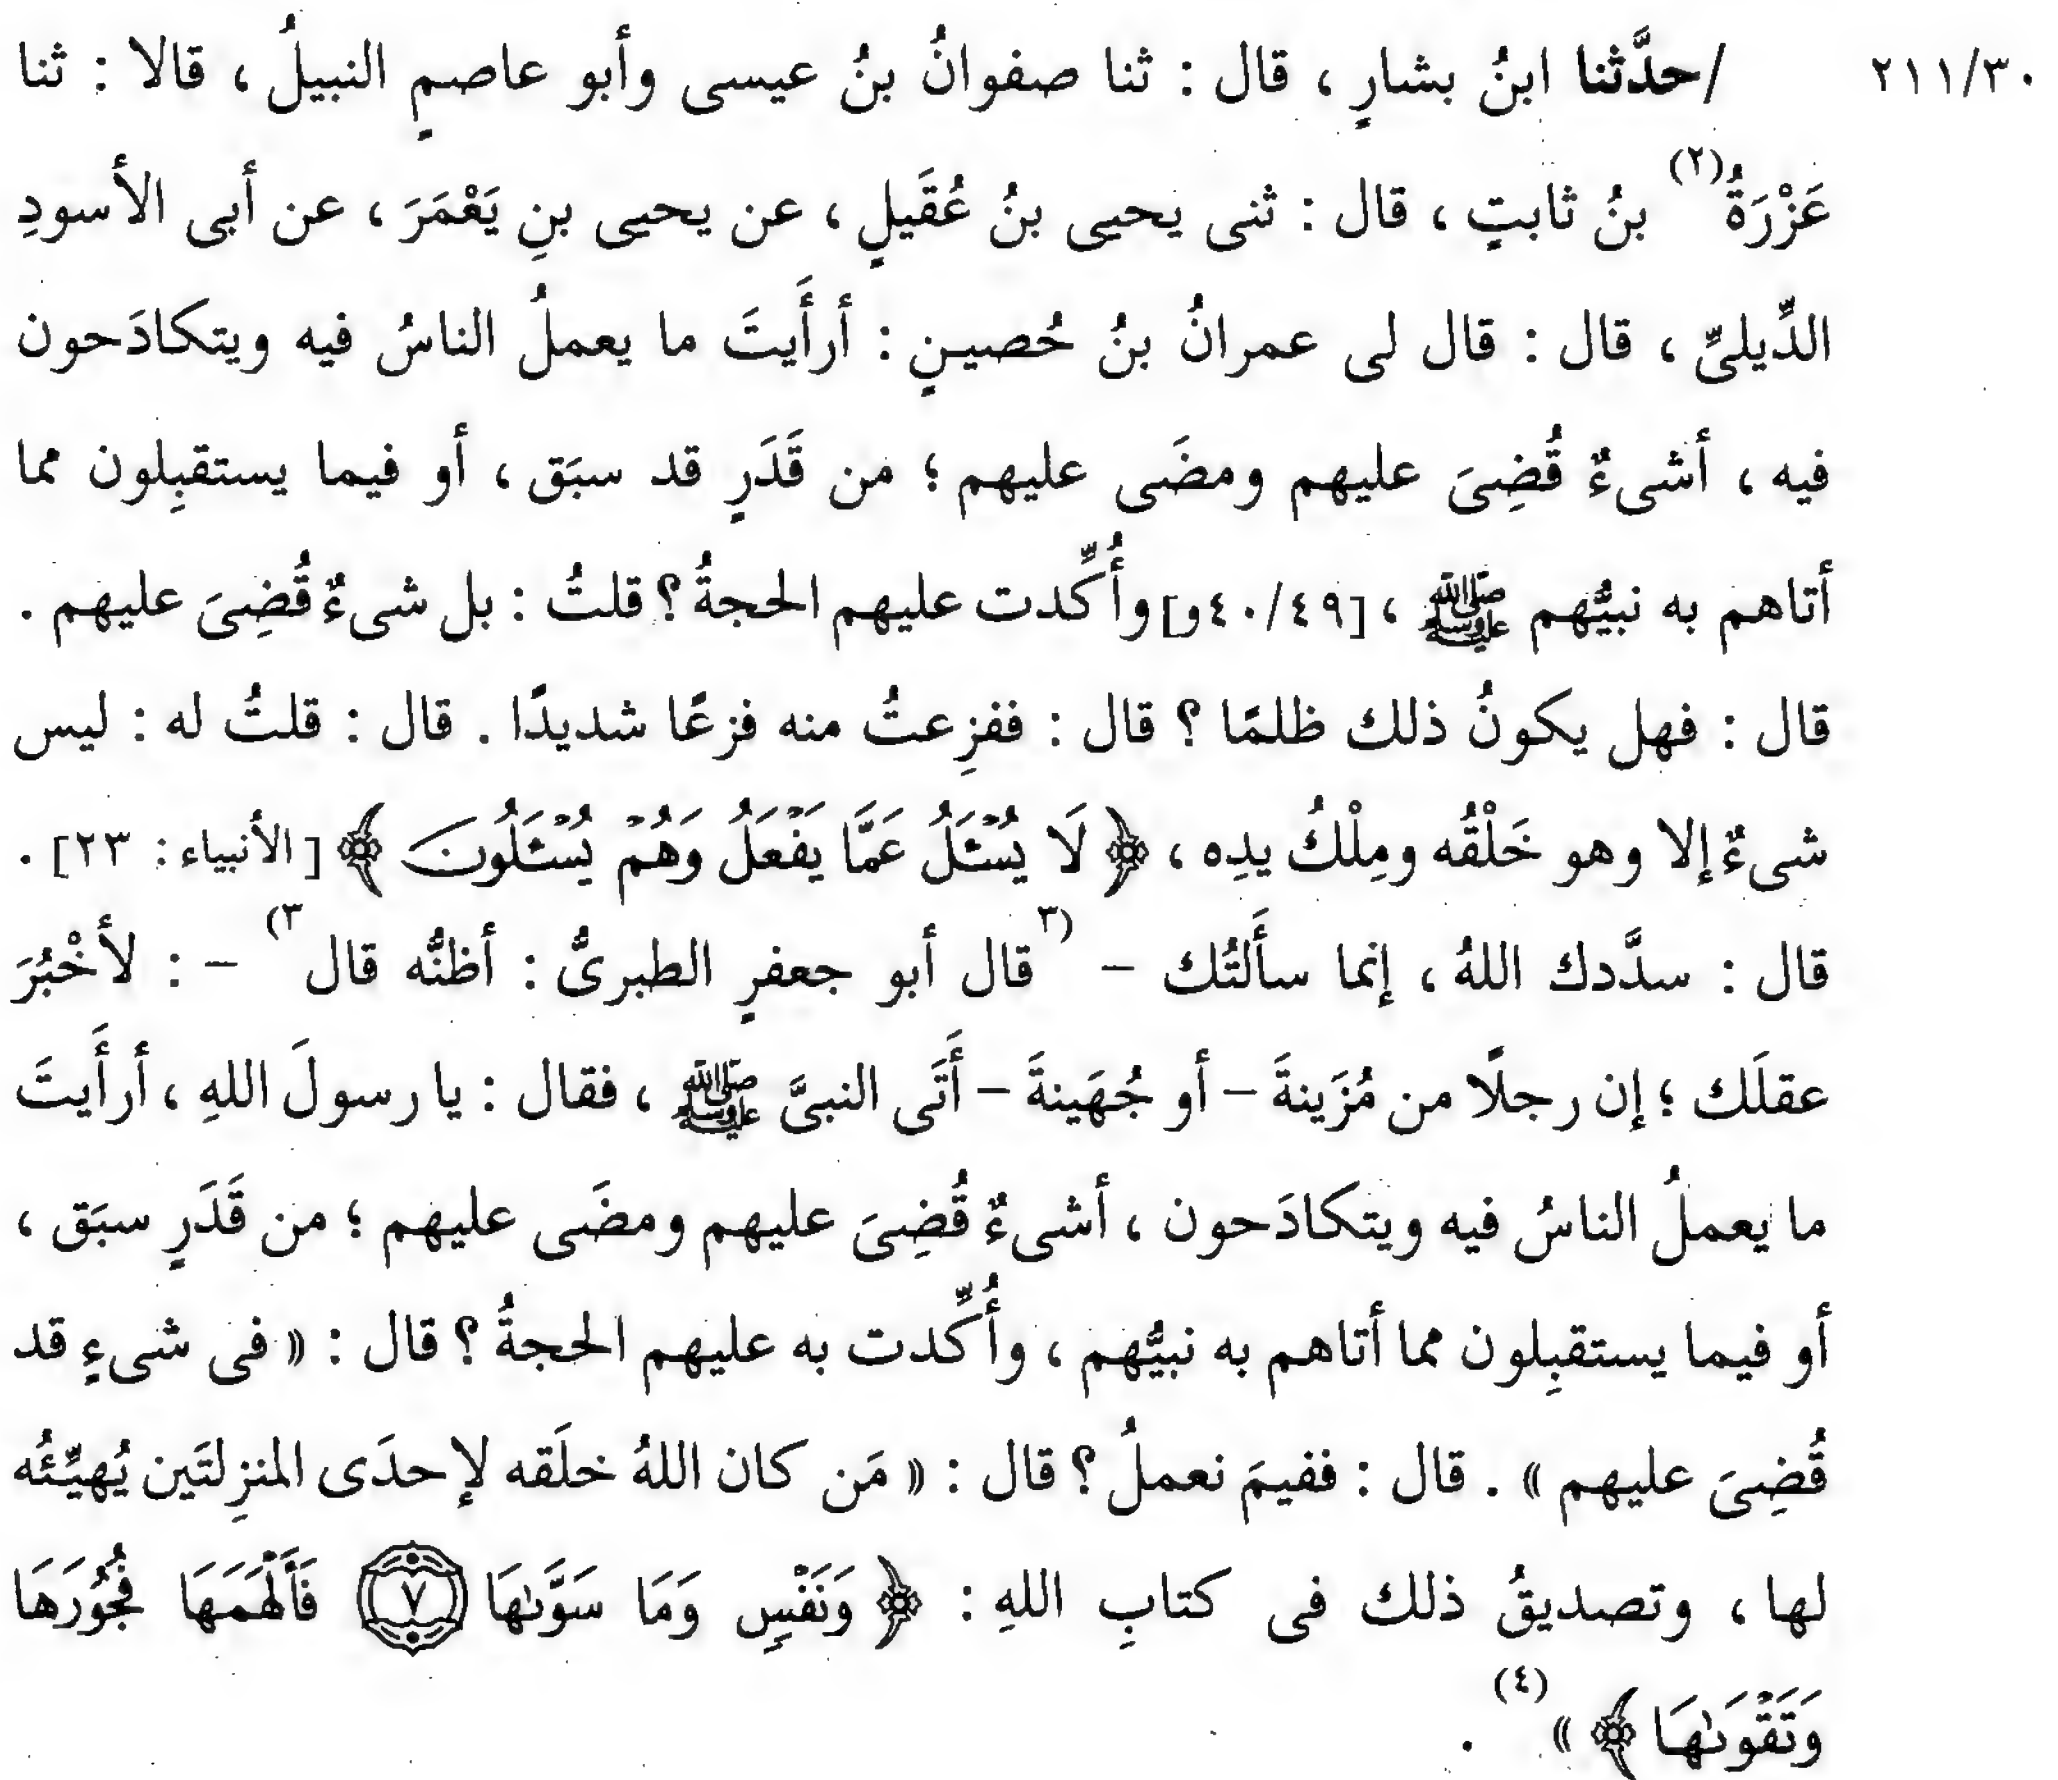 ٢١١/٣٠ /حدَّثنا ابنُ بشارٍ ، قال : ثنا صفوانُ بنُ عيسى وأبو عاصمٍ النبيلُ ، قالا : ثنا
عَزْرَةُ(٢) بنُ ثابتٍ ، قال : ثنى يحيى بنُ عُقَيلٍ ، عن يحيى بنِ يَعْمَرَ ، عن أبى الأسودِ
الدِّيلىِّ ، قال : قال لى عمرانُ بنُ حُصينٍ : أرأَيتَ ما يعملُ الناسُ فيه ويتكادَحون
فيه ، أشىءٌ قُضِىَ عليهم ومضَى عليهم ؛ من قَدَرٍ قد سبَق ، أو فيما يستقبِلون مما
أتاهم به نبيُّهم ﷺ ، [٤٠/٤٩و] وأُكِّدت عليهم الحجةُ ؟ قلتُ : بل شىءٌ قُضِىَ عليهم .
قال : فهل يكونُ ذلك ظلمًا ؟ قال : ففزِعتُ منه فزعًا شديدًا . قال : قلتُ له : ليس
شىءٌ إلا وهو خَلْقُه ومِلْكُ يدِه ، ﴿ لَا يُسْـَٔلُ عَمَّا يَفْعَلُ وَهُمْ يُسْـَٔلُونَ ﴾ [ الأنبياء : ٢٣] .
قال : سدَّدك اللهُ ، إنما سأَلتُك – (٣قال أبو جعفرٍ الطبرىُّ : أظنُّه قال٣) – : لأخْبُرَ
عقلَك ؛ إن رجلًا من مُزَينةَ – أو جُهَينةَ – أَتَى النبىَّ ﷺ ، فقال : يا رسولَ اللهِ ، أرأَيتَ
ما يعملُ الناسُ فيه ويتكادَحون ، أشىءٌ قُضِىَ عليهم ومضَى عليهم ؛ من قَدَرٍ سبَق ،
أو فيما يستقبِلون مما أتاهم به نبيُّهم ، وأُكِّدت به عليهم الحجةُ ؟ قال : « فى شىءٍ قد
قُضِىَ عليهم » . قال : ففيمَ نعملُ ؟ قال : « مَن كان اللهُ خلَقه لإحدَى المنزِلتَين يُهيِّئُه
لها ، وتصديقُ ذلك فى كتابِ اللهِ : ﴿ وَنَفْسٍ وَمَا سَوَّىٰهَا ٧ فَأَلْهَمَهَا فُجُورَهَا
وَتَقْوَىٰهَا ﴾ »(٤) .